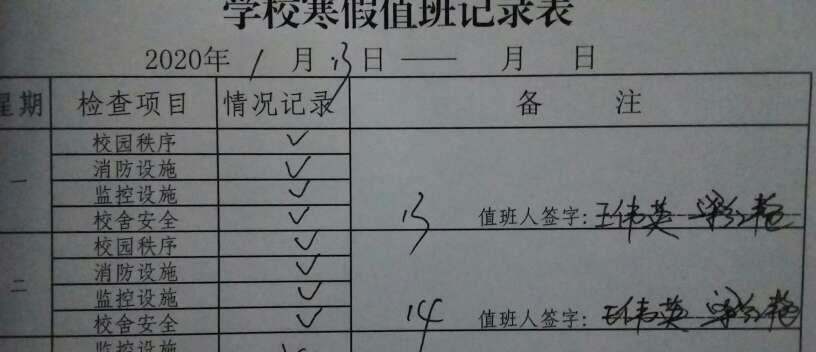 学校寒假值班记录表
2020年 1月13日 —— 月 日
星期 检查项目 情况记录 备 注
一 校园秩序 ✓
消防设施 ✓
监控设施 ✓
校舍安全 ✓ 13 值班人签字: 王伟英
二 校园秩序 ✓
消防设施 ✓
监控设施 ✓
校舍安全 ✓ 14 值班人签字: 王伟英
监控设施